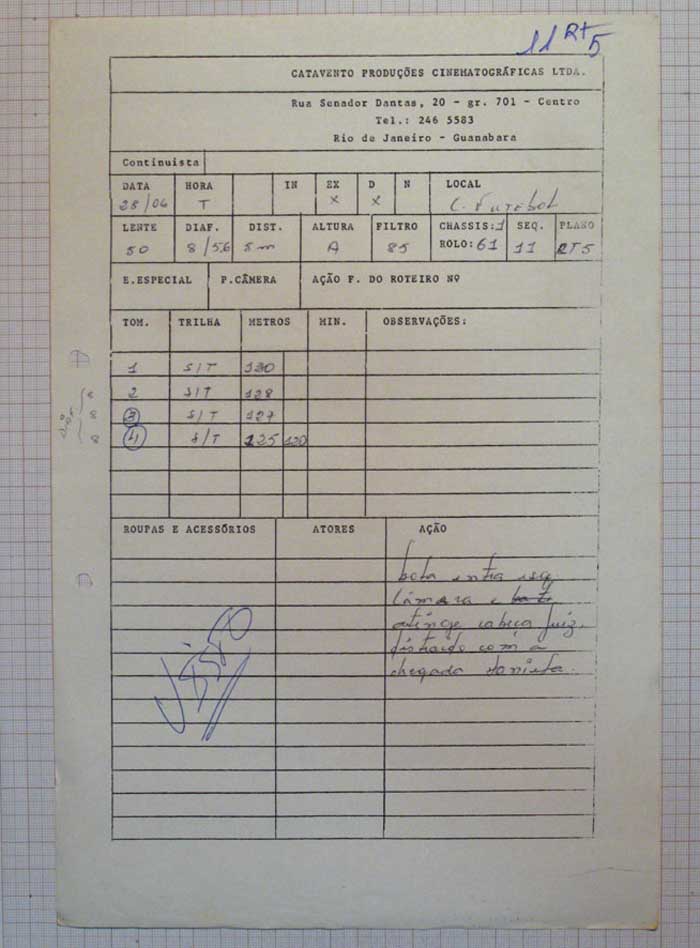 11 RT5
CATAVENTO PRODUÇÕES CINEMATOGRÁFICAS LTDA.
Rua Senador Dantas, 20 - gr. 701 - Centro
Tel.: 246 5583
Rio de Janeiro - Guanabara
Continuista
DATA HORA IN EX D N LOCAL
28/04 T X X C. Futebol
LENTE DIAF. DIST. ALTURA FILTRO CHASSIS:1 SEQ. PLANO
50 8/56 8m A 85 ROLO:61 11 RT5
E.ESPECIAL P.CÂMERA AÇÃO F. DO ROTEIRO Nº
TOM. TRILHA METROS MIN. OBSERVAÇÕES:
1 S/T 130
2 S/T 128
3 S/T 127
4 S/T 125 120
ROUPAS E ACESSÓRIOS ATORES AÇÃO
bola entra esq
câmara e
atinge cabeça juiz
distraido com a
chegada